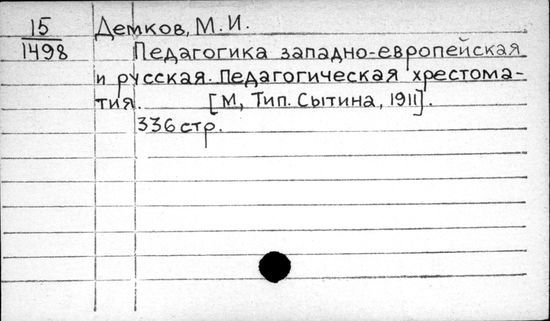 15 Демков, М. И.
1498 Педагогика западно-европейская
и русская. Педагогическая хрестома-
тия. [М, Тип. Сытина, 1911].
336 стр.